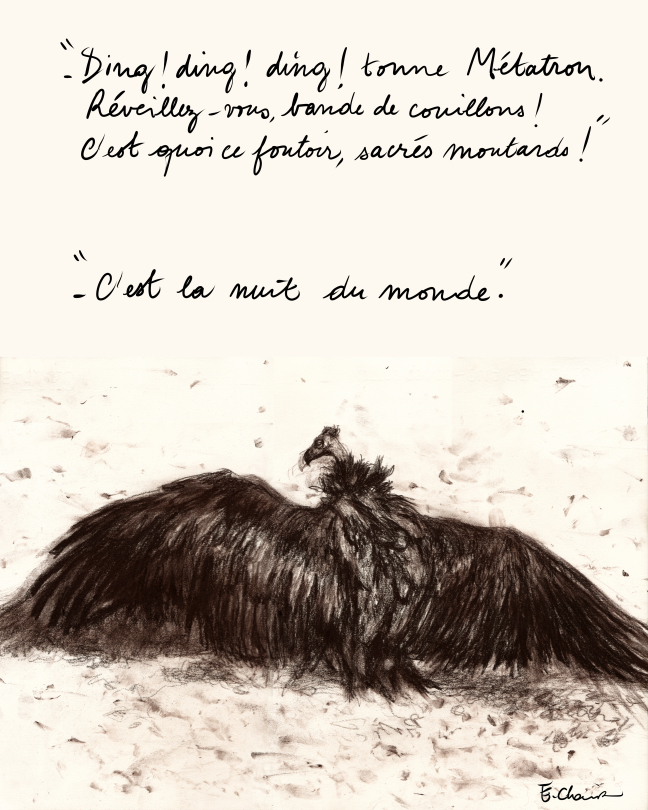 "- Ding ! ding ! ding ! tonne Métatron.
Réveillez-vous, bande de couillons !
C'est quoi ce foutoir, sacrés moutards ! "
"- C'est la nuit du monde. "